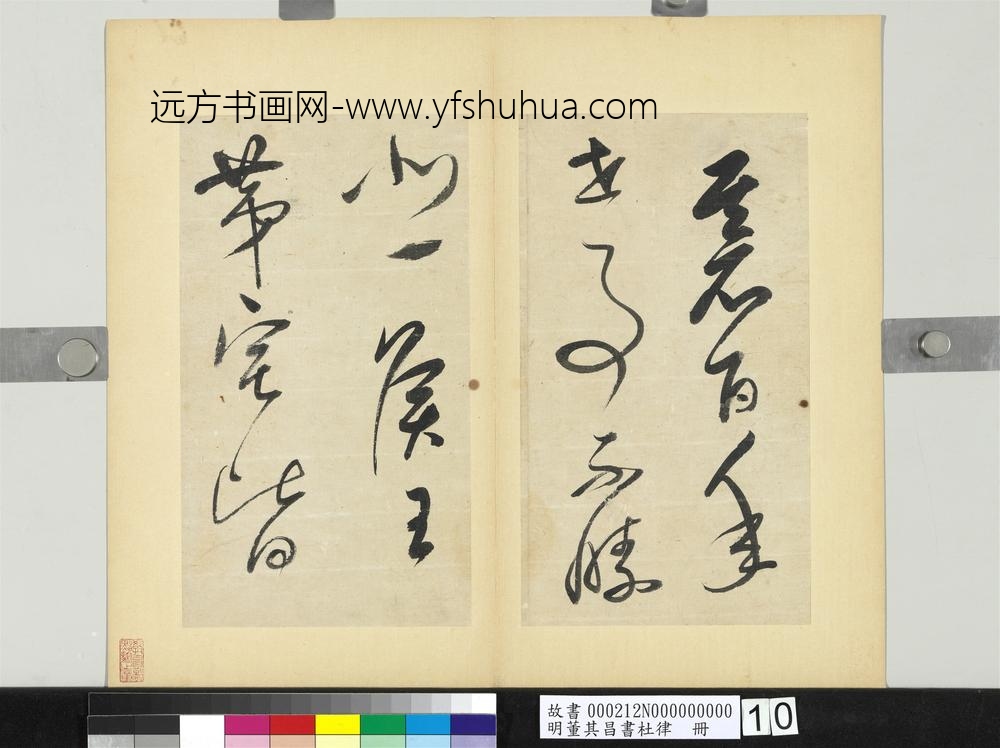 远方书画网-www.yfshuhua.com
碁百年
世事不勝
悲侯王
第宅皆
故書 000212N000000000
明董其昌書杜律 冊
10